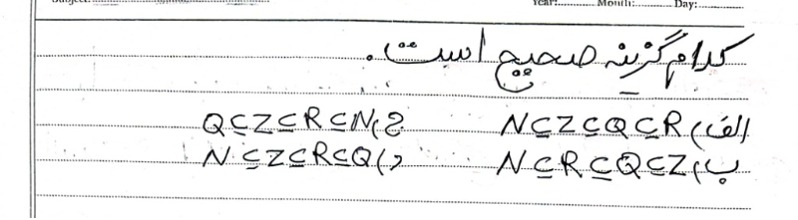 Subject: Year: Month: Day:
کدام گزینه صحیح است.
الف) N⊆Z⊆Q⊆R ج) Q⊆Z⊆R⊆N
ب) N⊆R⊆Q⊆Z د) N⊆Z⊆R⊆Q